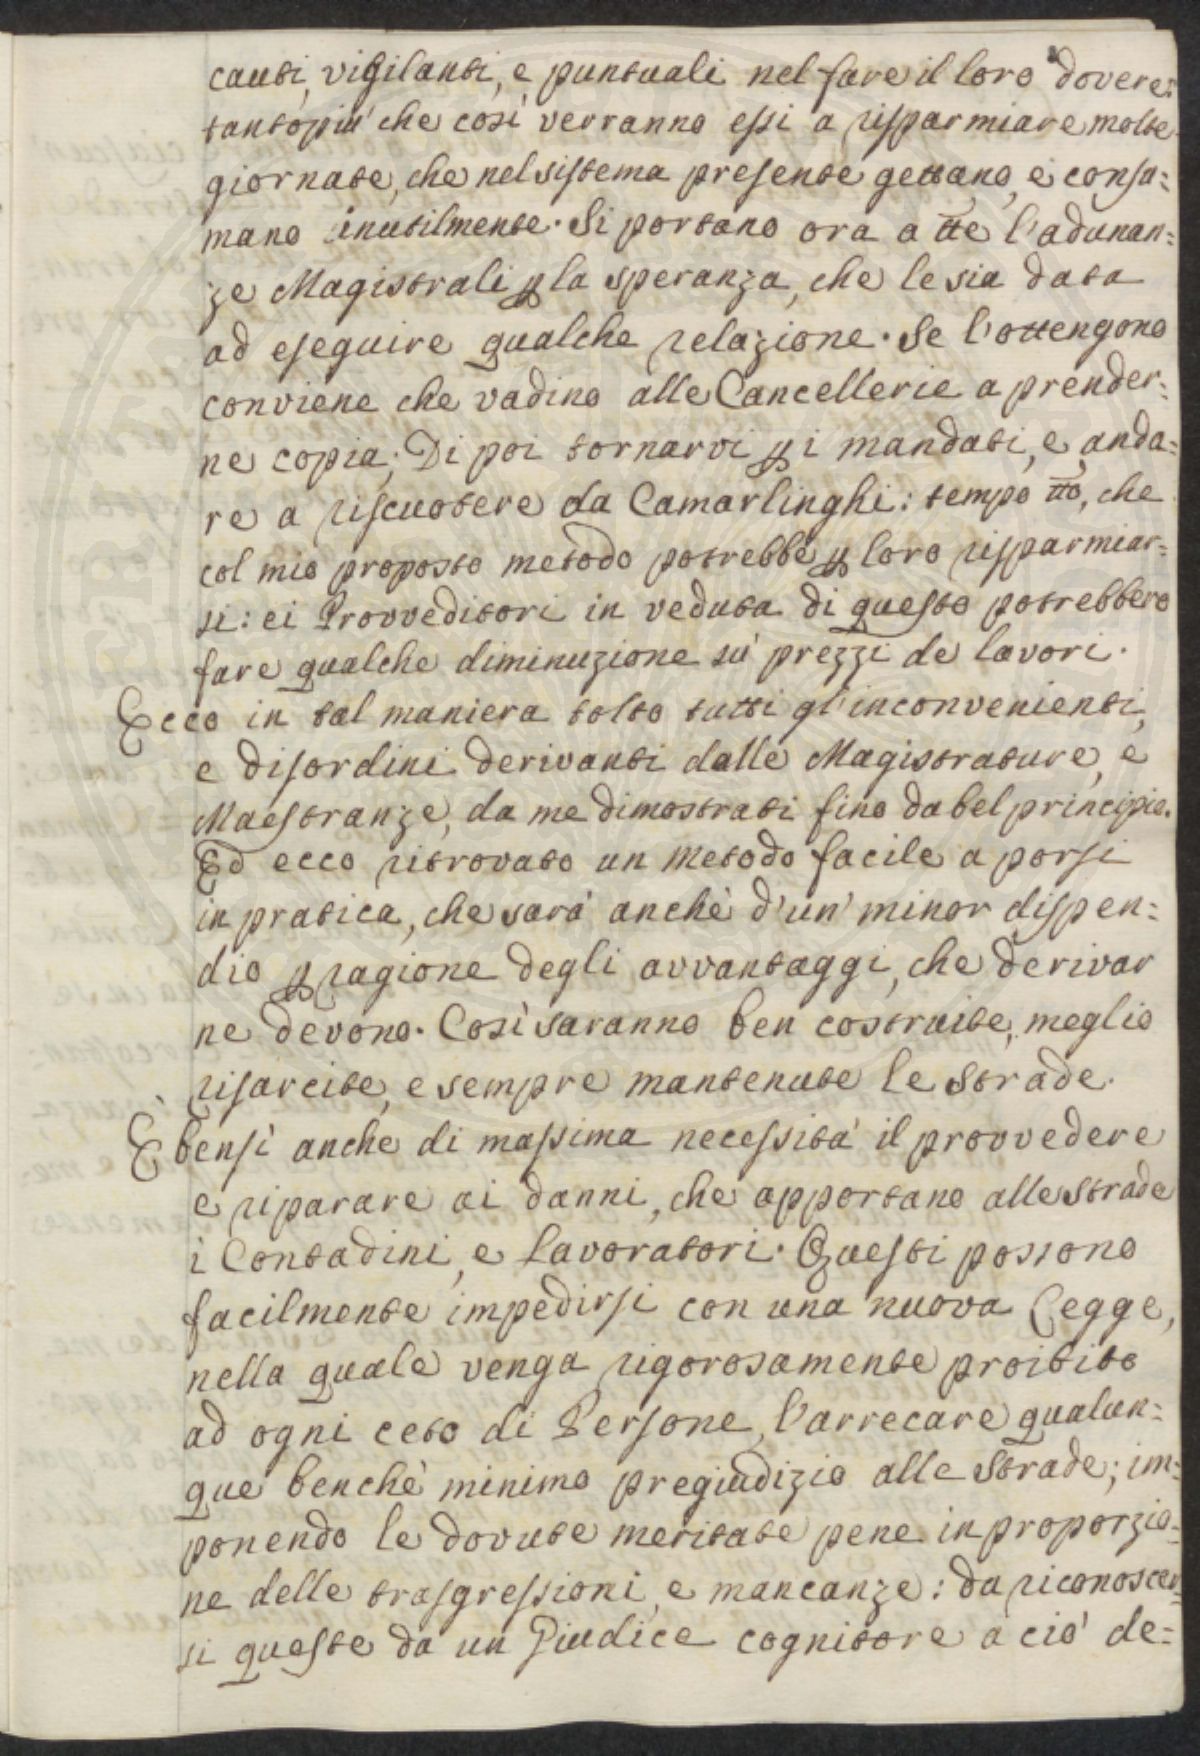 cauti, vigilanti, e puntuali nel fare il loro dovere:
tantopiù che così verranno essi a risparmiare molte
giornate, che nel sistema presente gettano, e consu=
mano inutilmente. Si portano ora a tte l'adunan=
ze Magistrali p la speranza, che le sia data
ad eseguire qualche relazione. Se l'ottengono
conviene che vadino alle Cancellerie a prender=
ne copia; Di poi tornarvi p i mandati, e anda=
re a riscuotere da Camarlinghi: tempo tto, che
col mio proposto metodo potrebbe p loro risparmiar=
si: ei Provveditori in veduta di questo potrebbero
fare qualche diminuzione sù prezzi de lavori.
Ecco in tal maniera tolto tutti gl'inconvenienti,
e disordini derivanti dalle Magistrature, e
Maestranze, da me dimostrati fino da bel principio.
Ed ecco ritrovato un metodo facile a porsi
in pratica, che sarà anche d'un' minor dispen=
dio p ragione degli avvantaggi, che derivar
ne devono. Così saranno ben costruite, meglio
risarcite, e sempre mantenute le strade.
È bensì anche di massima necessità il provvedere
e riparare ai danni, che apportano alle strade
i Contadini, e Lavoratori. Questi possono
facilmente impedirsi con una nuova Legge,
nella quale venga rigorosamente proibito
ad ogni ceto di Persone, l'arrecare qualun=
que benchè minimo pregiudizio alle Strade; im=
ponendo le dovute meritate pene in proporzio=
ne delle trasgressioni, e mancanze: da riconoscer=
si queste da un Giudice cognitore a ciò de=